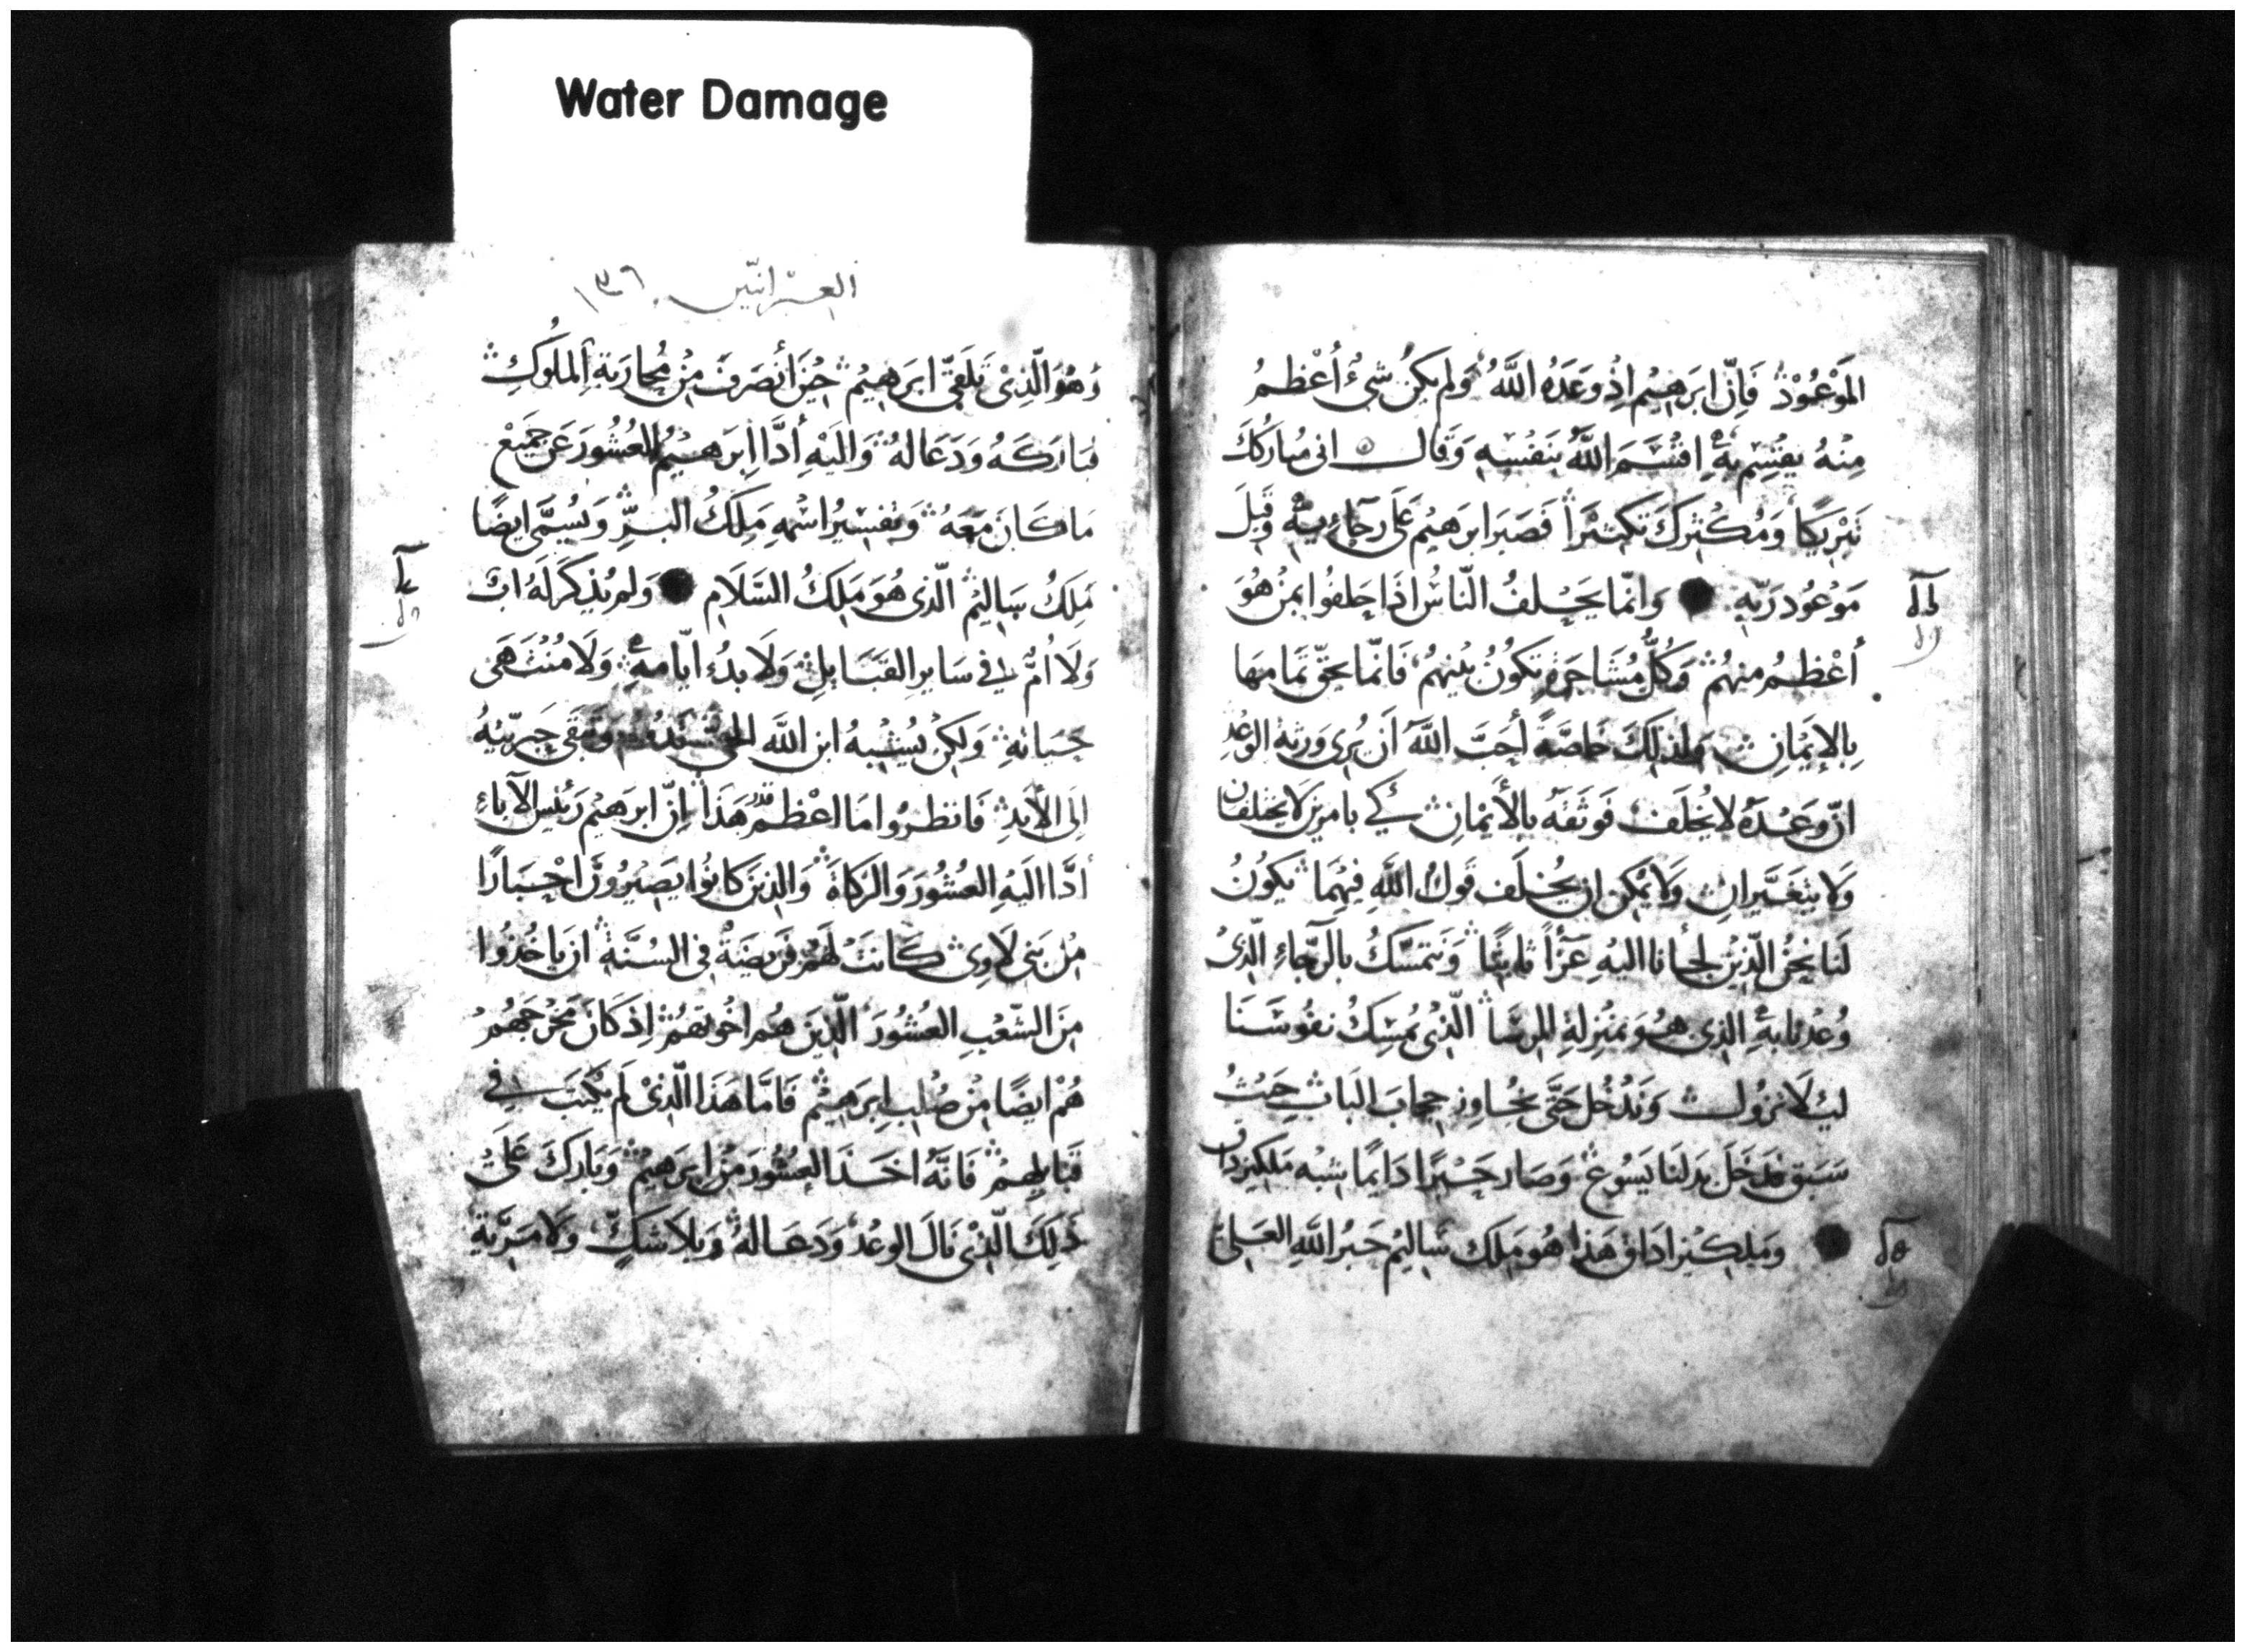 Water Damage
الموعود فَانّ ابرهيم اذ وعَدَهُ اللَّهُ وَلم يكن شىءٌ أعْظمُ
مِنهُ يقسِم بهِ اقسَمَ اللَّهُ بنَفسِهِ وَقال انى مُباركك
تَبْرِيكًا وَمُكثرك تكثيرًا فَصَبَر ابرهيم عَلى رجَاءِ به وقبلَ
مَوْعُود رَبّهِ وَانّما يَحْلفُ النّاسُ اذا حلفوا بمن هُوَ
أعْظمُ منهُم وَكُلُّ مُشَاجَرَةٍ تكونُ بَينهُم فَانّما يحقّ تمَامهَا
بِالإيمَانِ ولذلِكَ خاصّةً أحَبَّ اللَّهُ أن يُرى وَرثة الوَعْد
انّ وعْدَهُ لا يُخلَف فَوثقَه بالأيمَانِ كي بامرين لا يختلفان
وَلا يتغَيَّرانِ وَلا يمكن ان يُخلَف قولُ اللَّهِ فيهمَا يَكونُ
لَنا نحنُ الّذينَ لجأنا اليهِ عَزاً ثابتًا وَنتمسّكُ بالرّجاءِ الّذى
وُعدنا بهِ الذى هُوَ بمَنزلةِ المرسَا الّذى يُمسِكُ نفُوسَنَا
ليلا نزُول وَنَدْخل حَتّى نجُاوز حِجابَ البَاب حَيثُ
سَبَق فدَخَلَ بدلنَا يَسُوع وَصَار حَبْرًا دَايمًا بشبه مَلكيزداق
وَملكيزاداق هَذا هُو مَلِك سَاليم حَبرُ اللَّهِ العَلىّ
العبرانيّين ١٣٦
وَهُوَ الّذِىْ تلَقّى ابرَهيم حينَ أنصَرفَ مِن مُحَاربَةِ المُلوكِ
فَبَارَكَهُ وَدَعَا لهُ وَاليَهِ أدَّا ابرَهيمُ العُشُورَ عَن جَميْع
مَا كانَ مَعَهُ وَتفسِيُر اسْمهِ مَلِكُ البرِّ وَيُسَمَّى ايضًا
مَلِكُ سَالِيم الّذى هُوَ مَلِكُ السّلَامِ وَلم يُذكَر لَهُ ابٌ
وَلَا أُمٌّ في سَاير القبَايلِ وَلَا بدُء ايّامهِ وَلَا مُنتهَى
حَيَاتهِ وَلكِن يُشبهُ ابن اللَّه وَتبقَى حَبريّتهُ
الَى الأبدِ فَانظرُوا مَا اعْظم قدر هَذَا انّ ابرَهيم رَئيس الآباءِ
أدَّا اليَهِ العُشُورَ وَالزكاةَ وَالذينَ كانُوا يَصِيرُونَ احْبَارًا
مِن بَنى لَاوِى كَانتْ لهَم فَريضَةٌ فى السُنَّةِ ان يَاخُذوا
مِنَ الشّعْبِ العُشُورَ الّذينَ هُم اخُوتهُم اِذ كَانَ مَخرجهُم
هُمْ ايضًا مِن صُلب ابرَهيم فَامَّا هَذَا الّذىْ لَم يُكتَب في
قبَايلهِم فَانّهُ اخَذَ العُشُورَ مِن ابرَهيمُ وَبَاركَ عَلىَ
ذلِكَ الّذى نَالَ الوعْدَ وَدَعَا لهُ وَبلا شَكٍّ وَلَا مِرْيَةٍ